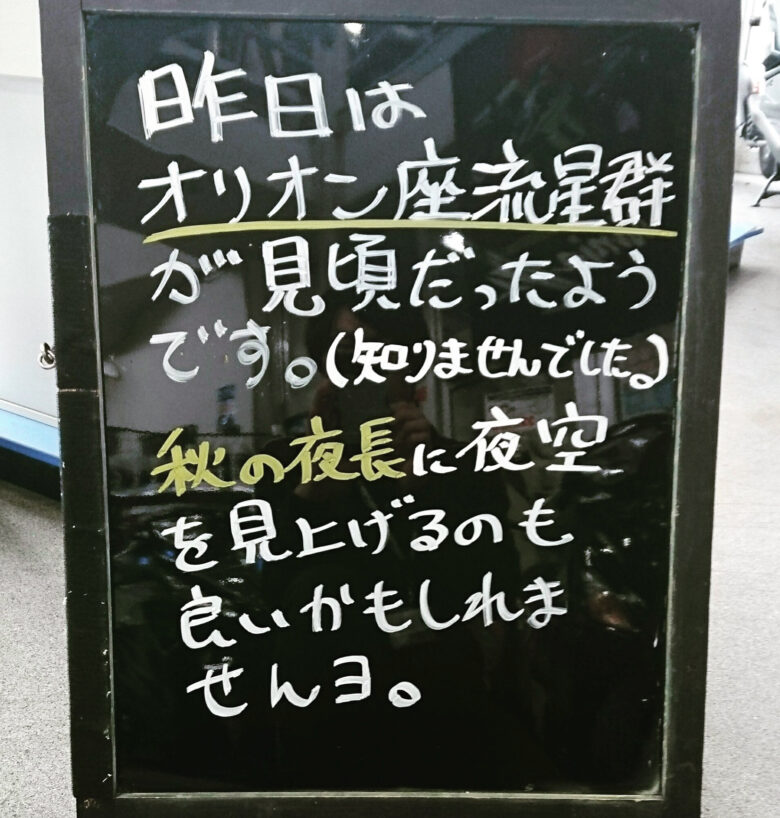 昨日は
オリオン座流星群
が見頃だったよう
です。(知りませんでした。)
秋の夜長に夜空
を見上げるのも
良いかもしれま
せんヨ。